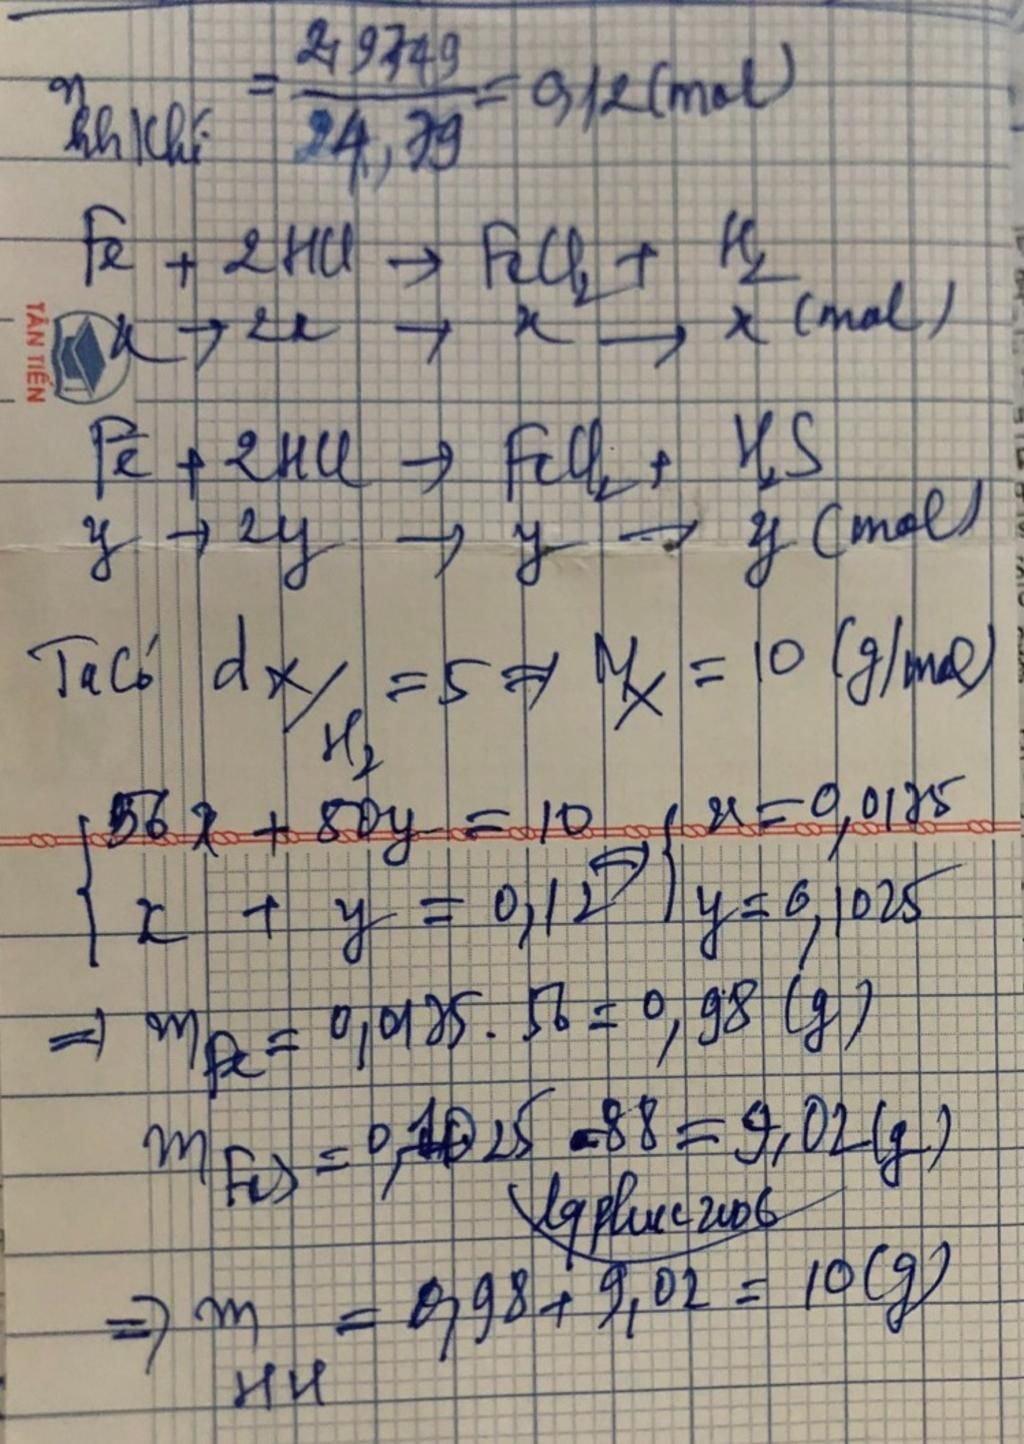 n hh khí = 2,9749 / 24,79 = 0,12 (mol)
Fe + 2HCl → FeCl2 + H2
TÂN TIẾN
x → 2x → x → x (mol)
Fe + 2HCl → FeCl2 + H2S
y → 2y → y → y (mol)
Ta có d x/H2 = 5 => Mx = 10 (g/mol)
56x + 80y = 10 x = 0,0175
x + y = 0,12 => y = 0,1025
=> m Fe = 0,0175. 56 = 0,98 (g)
m FeS = 0,1025 . 88 = 9,02 (g)
=> m HH = 0,98 + 9,02 = 10 (g)